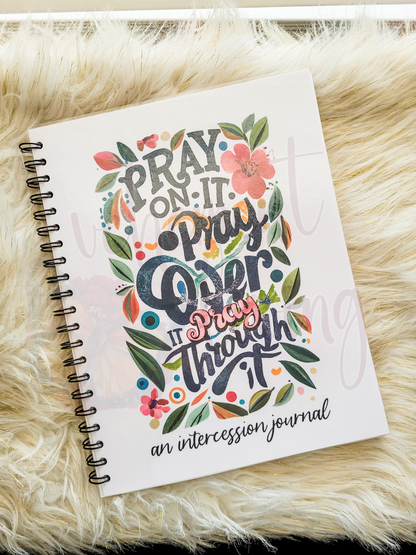 PRAY
ON·IT·
Pray
Over
IT Pray
Through
it
an intercession journal